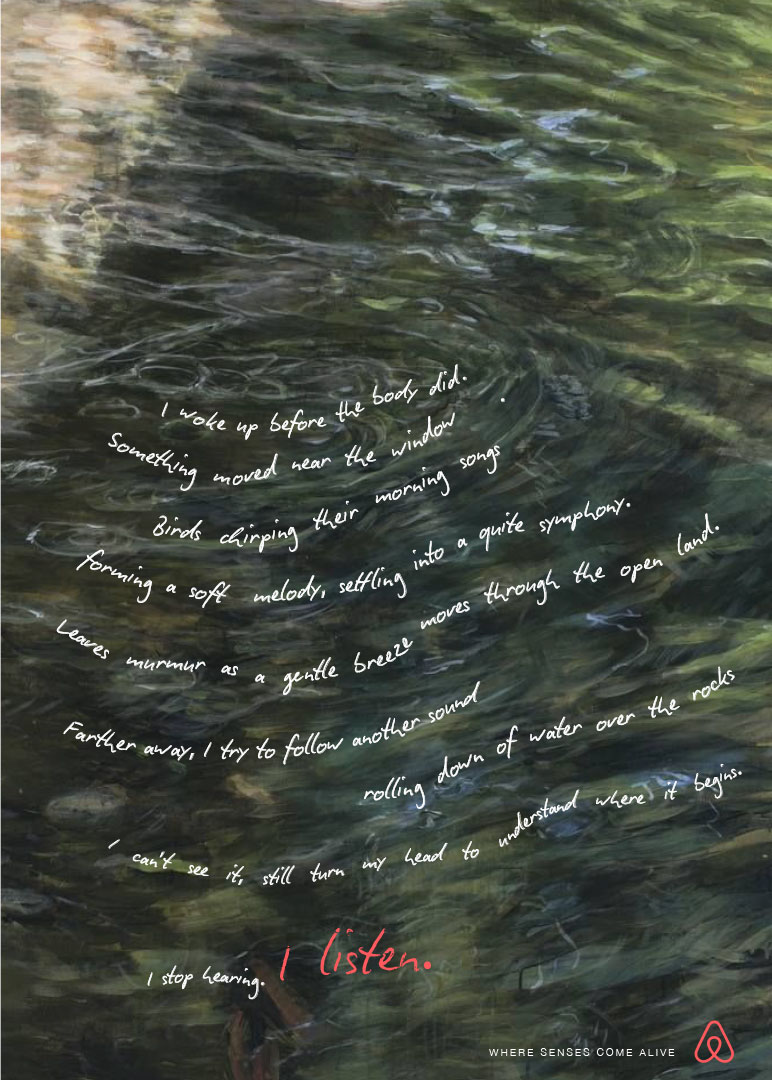 I woke up before the body did.
Something moved near the window.
Birds chirping their morning songs
forming a soft melody, settling into a quite symphony.
Leaves murmur as a gentle breeze moves through the open land.
Farther away, I try to follow another sound
rolling down of water over the rocks
I can't see it, still turn my head to understand where it begins.
I stop hearing. I listen.
WHERE SENSES COME ALIVE